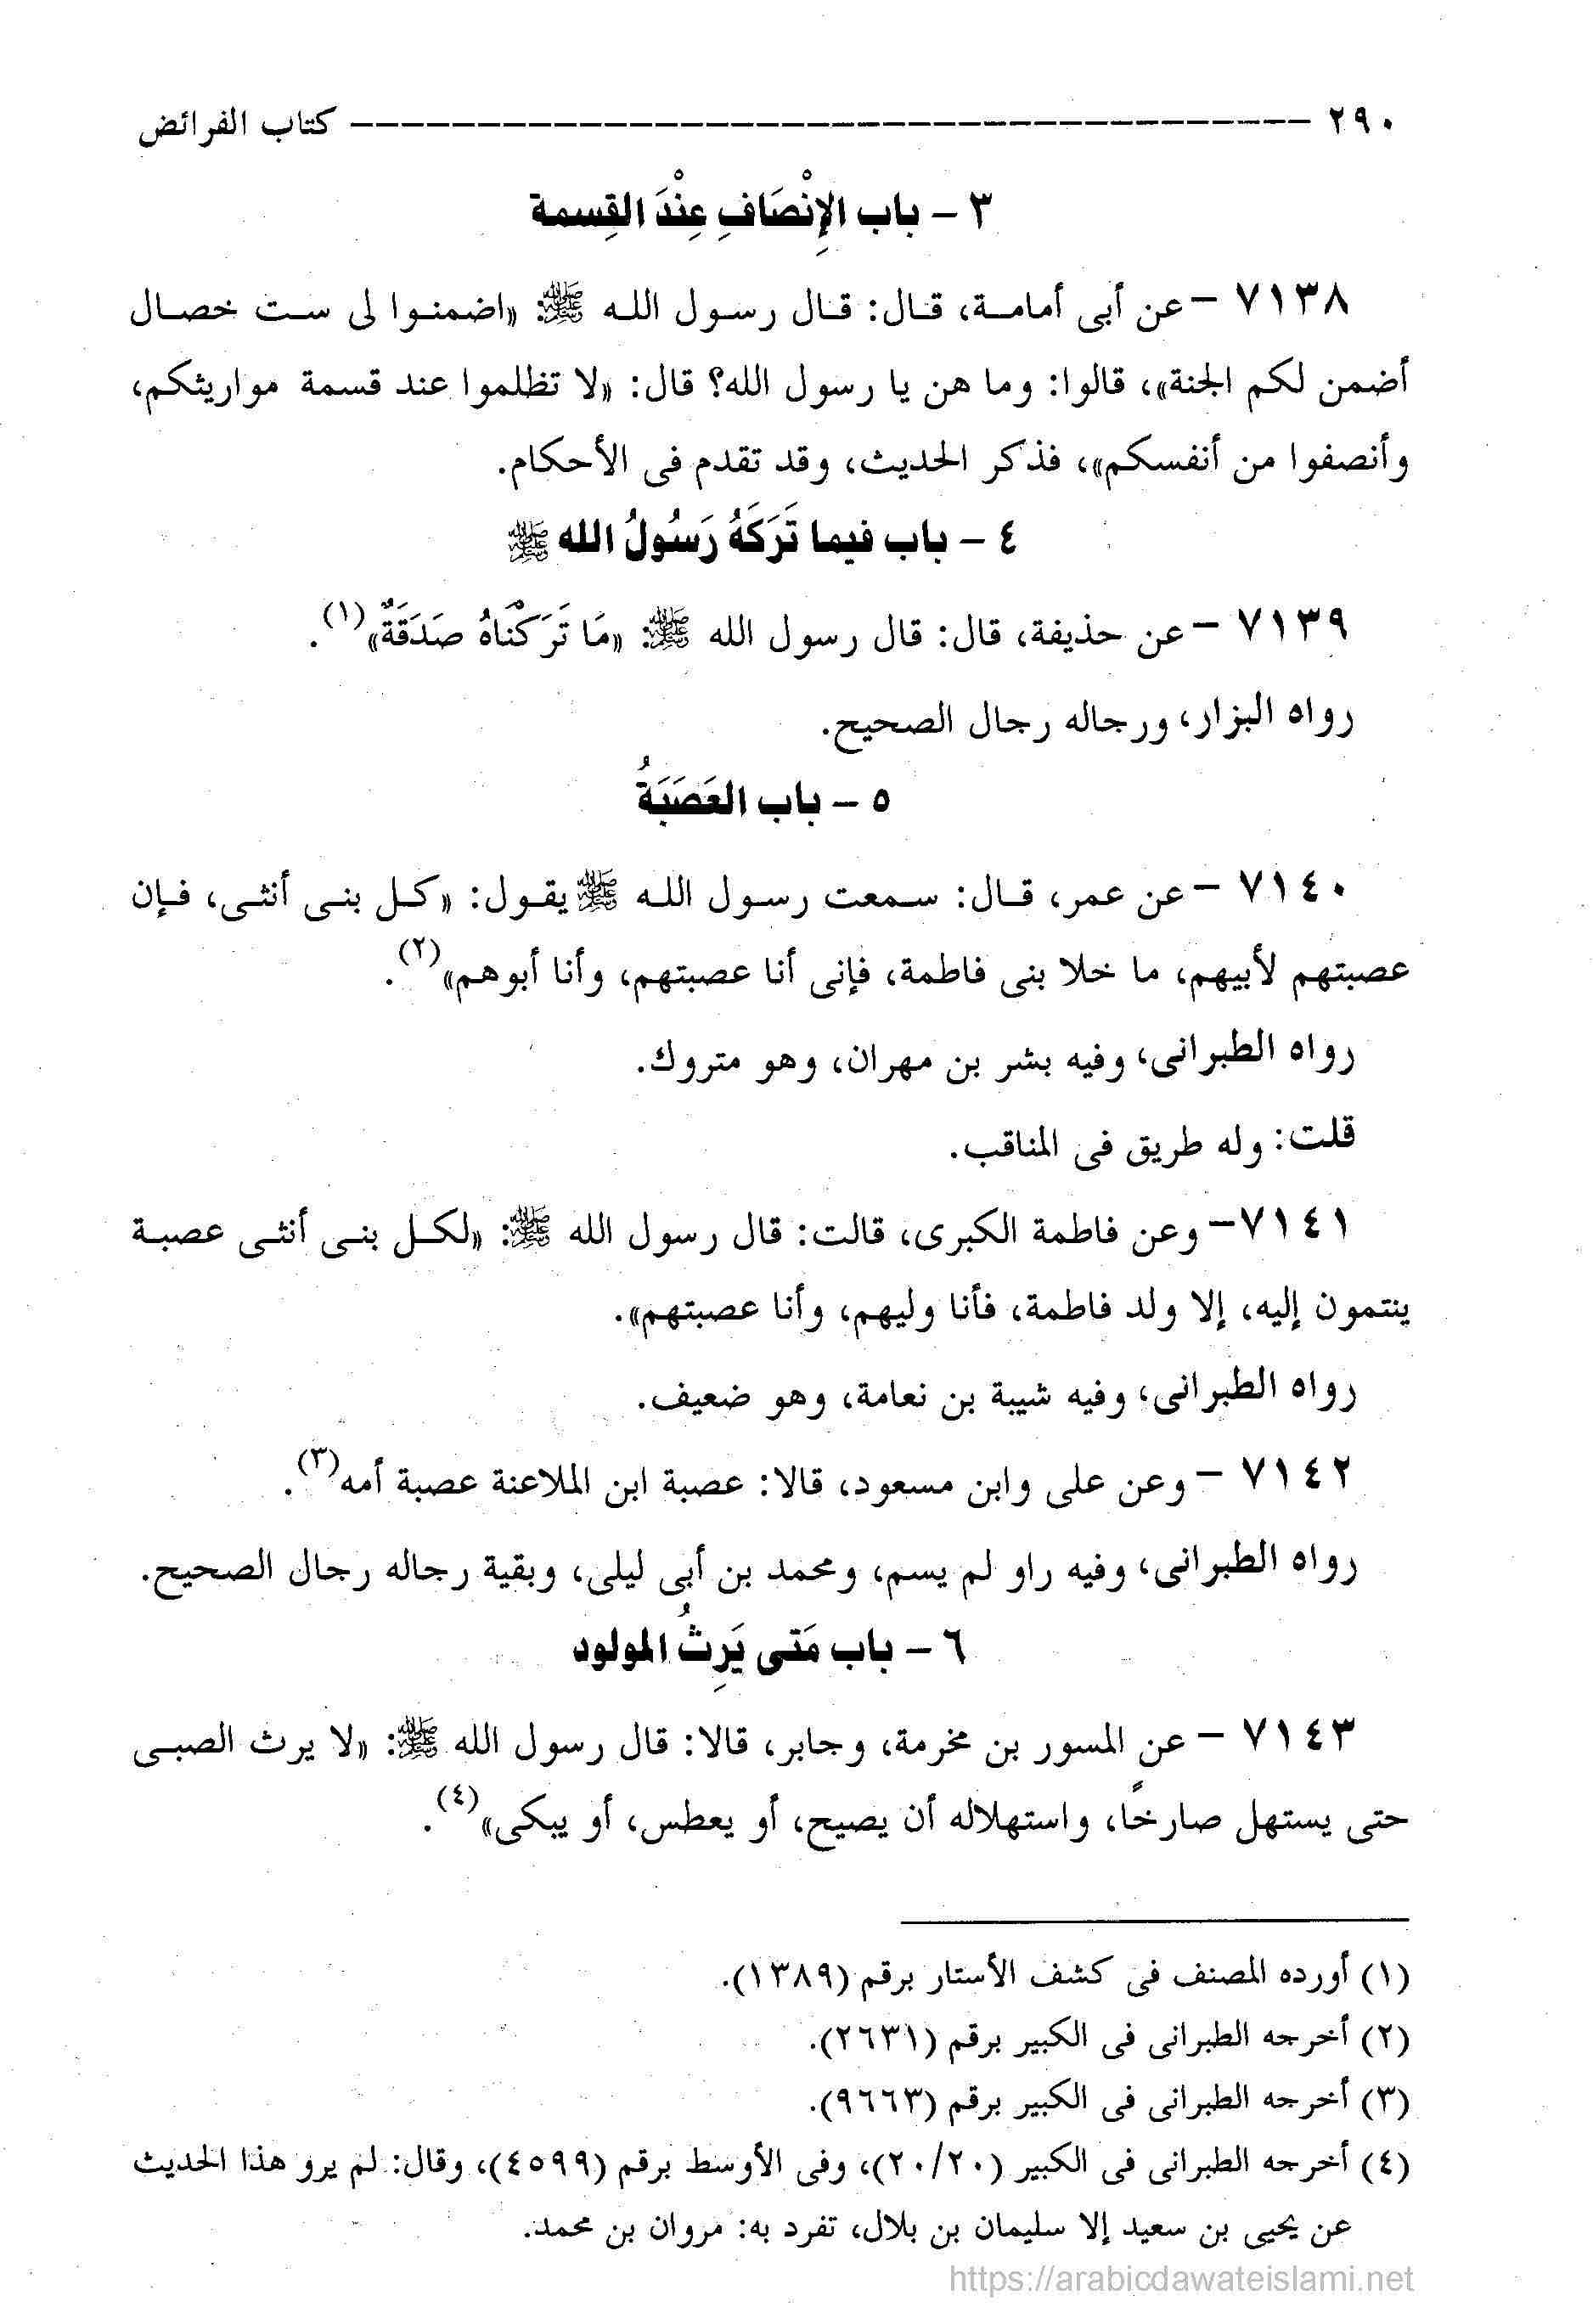 ٢٩٠ ---------------------------------------- كتاب الفرائض
٣ - باب الإِنْصَافِ عِنْدَ القِسمة
٧١٣٨ - عن أبى أمامة، قال: قال رسول الله ﷺ: «اضمنوا لى ست خصال
أضمن لكم الجنة»، قالوا: وما هن يا رسول الله؟ قال: «لا تظلموا عند قسمة مواريثكم،
وأنصفوا من أنفسكم»، فذكر الحديث، وقد تقدم فى الأحكام.
٤ - باب فيما تَرَكَهُ رَسُولُ الله ﷺ
٧١٣٩ - عن حذيفة، قال: قال رسول الله ﷺ: «مَا تَرَكْنَاهُ صَدَقَةٌ»(١).
رواه البزار، ورجاله رجال الصحيح.
٥ - باب العَصَبَةُ
٧١٤٠ - عن عمر، قال: سمعت رسول الله ﷺ يقول: «كل بنى أنثى، فإن
عصبتهم لأبيهم، ما خلا بنى فاطمة، فإنى أنا عصبتهم، وأنا أبوهم»(٢).
رواه الطبرانى، وفيه بشر بن مهران، وهو متروك.
قلت: وله طريق فى المناقب.
٧١٤١ - وعن فاطمة الكبرى، قالت: قال رسول الله ﷺ: «لكل بنى أنثى عصبة
ينتمون إليه، إلا ولد فاطمة، فأنا وليهم، وأنا عصبتهم».
رواه الطبرانى، وفيه شيبة بن نعامة، وهو ضعيف.
٧١٤٢ - وعن على وابن مسعود، قالا: عصبة ابن الملاعنة عصبة أمه(٣).
رواه الطبرانى، وفيه راو لم يسم، ومحمد بن أبى ليلى، وبقية رجاله رجال الصحيح.
٦ - باب مَتى يَرِثُ المولود
٧١٤٣ - عن المسور بن مخرمة، وجابر، قالا: قال رسول الله ﷺ: «لا يرث الصبى
حتى يستهل صارخًا، واستهلاله أن يصيح، أو يعطس، أو يبكى»(٤).
(١) أورده المصنف فى كشف الأستار برقم (١٣٨٩).
(٢) أخرجه الطبرانى فى الكبير برقم (٢٦٣١).
(٣) أخرجه الطبرانى فى الكبير برقم (٩٦٦٣).
(٤) أخرجه الطبرانى فى الكبير (٢٠/٢٠)، وفى الأوسط برقم (٤٥٩٩)، وقال: لم يرو هذا الحديث
عن يحيى بن سعيد إلا سليمان بن بلال، تفرد به: مروان بن محمد.
https://arabicdawateislami.net